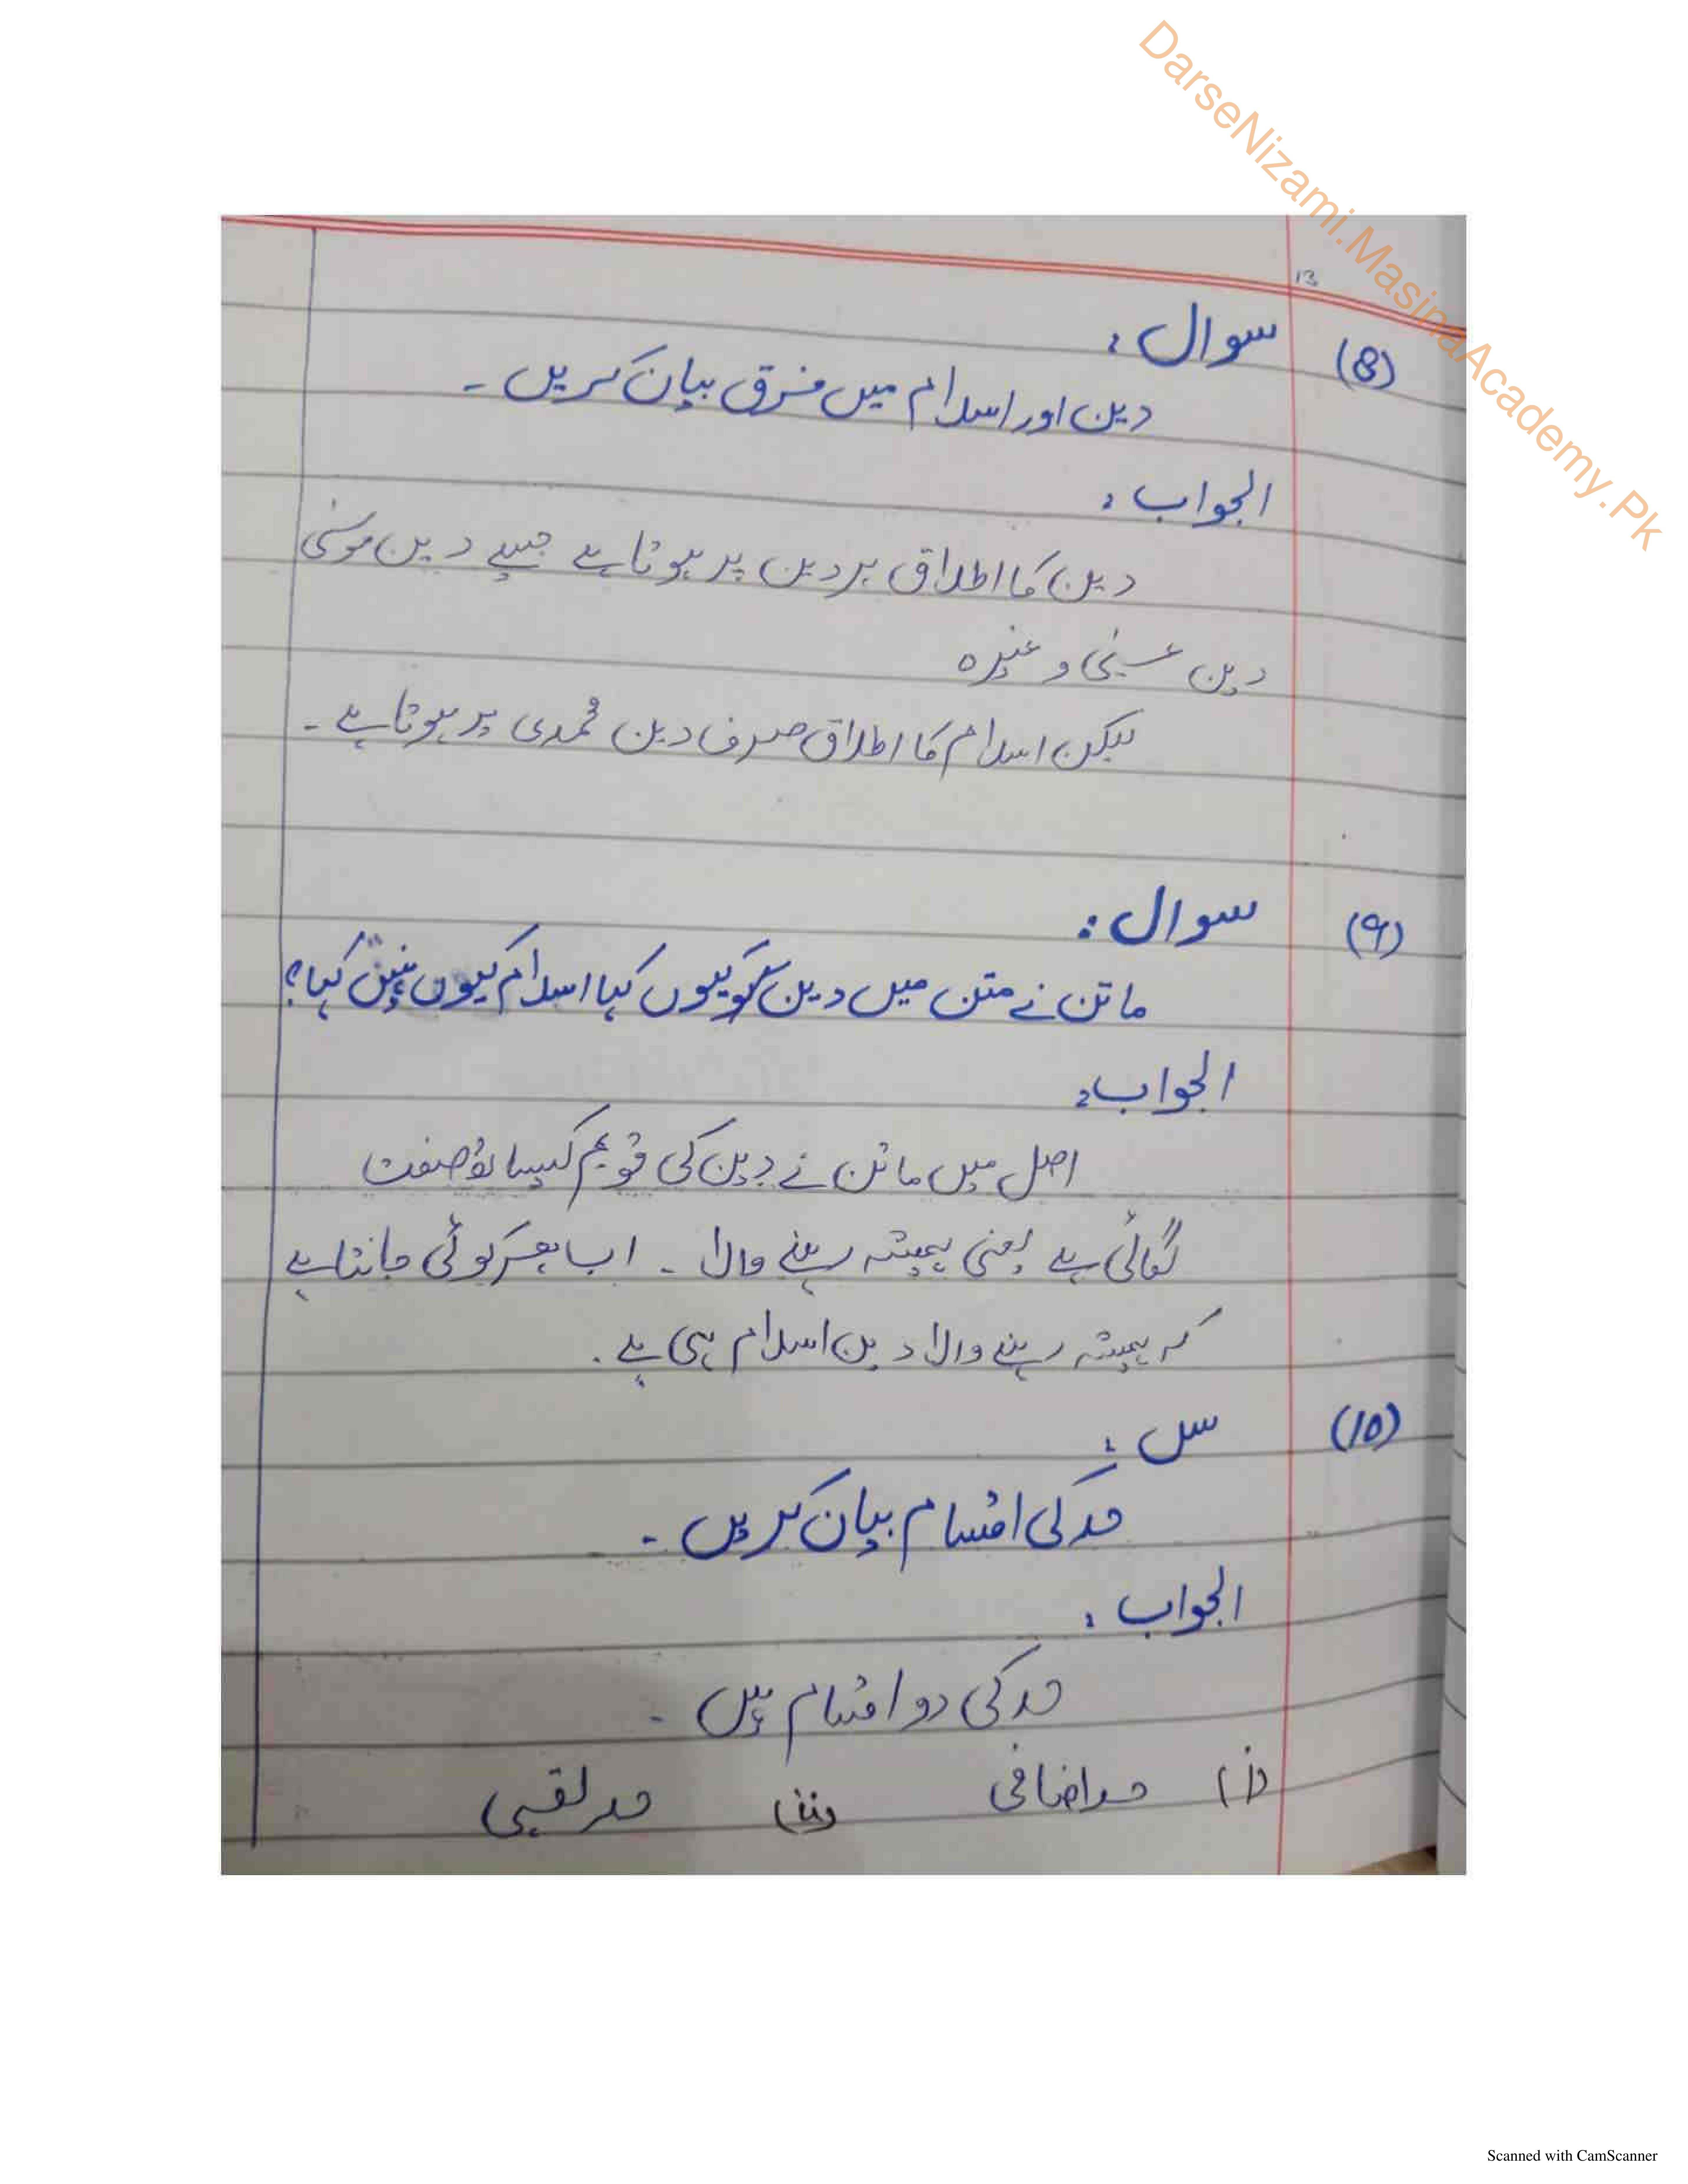 DarseNizami.MasinaAcademy.Pk
13
(8) سوال :
دین اور اسلام میں فرق بیان کریں ۔
الجواب :
دین کا اطلاق ہر دین پر ہوتا ہے جیسے دین موسٰی
دین عیسٰی وغیرہ
لیکن اسلام کا اطلاق صرف دین محمدی پر ہوتا ہے ۔
(9) سوال :
ماتن نے متن میں دین کو کیوں کہا اسلام کیوں نہیں کہا ؟
الجواب :
اصل میں ماتن نے دین کی قویم کیساتھ صفت
لگائی ہے یعنی ہمیشہ رہنے والا ۔ اب ہر کوئی جانتا ہے
کہ ہمیشہ رہنے والا دین اسلام ہی ہے .
(10) س :
حد کی اقسام بیان کریں ۔
الجواب :
حد کی دو اقسام ہیں ۔
(i) حد اضافی (ii) حد لقبی
Scanned with CamScanner